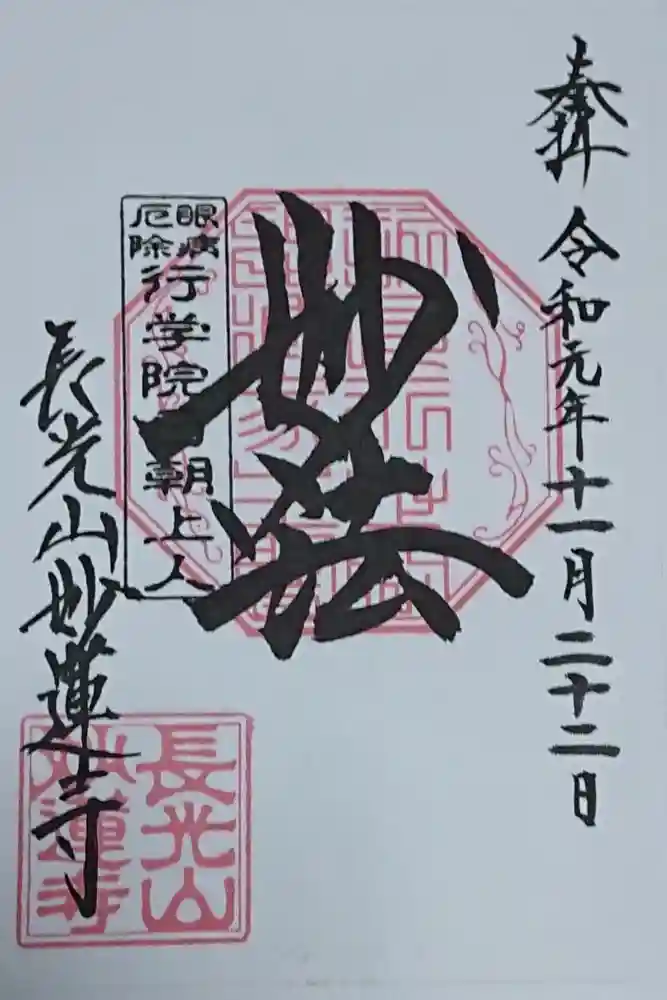 奉拝
令和元年十一月二十二日
妙法
眼病
厄除
行学院日朝上人
長光山妙蓮寺
長光山
妙蓮寺